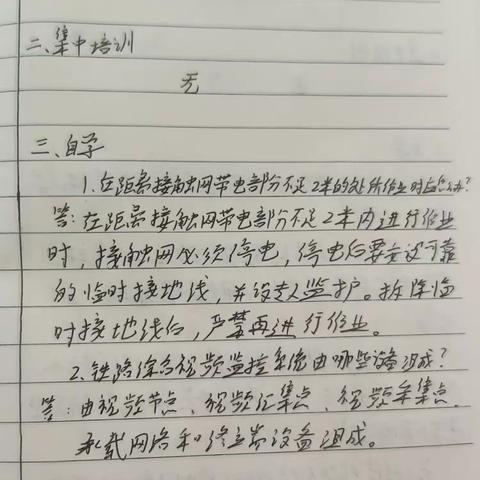 二、集中培训
无
三、自学
1.在距离接触网带电部分不足2米的处所作业时应怎么办?
答:在距离接触网带电部分不足2米内进行作业
时,接触网必须停电,停电后要安设可靠
的临时接地线,并设专人监护。拆除临
时接地线后,严禁再进行作业。
2.铁路综合视频监控系统由哪些设备组成?
答:由视频节点、视频汇集点、视频采集点、
承载网络和终端设备组成。